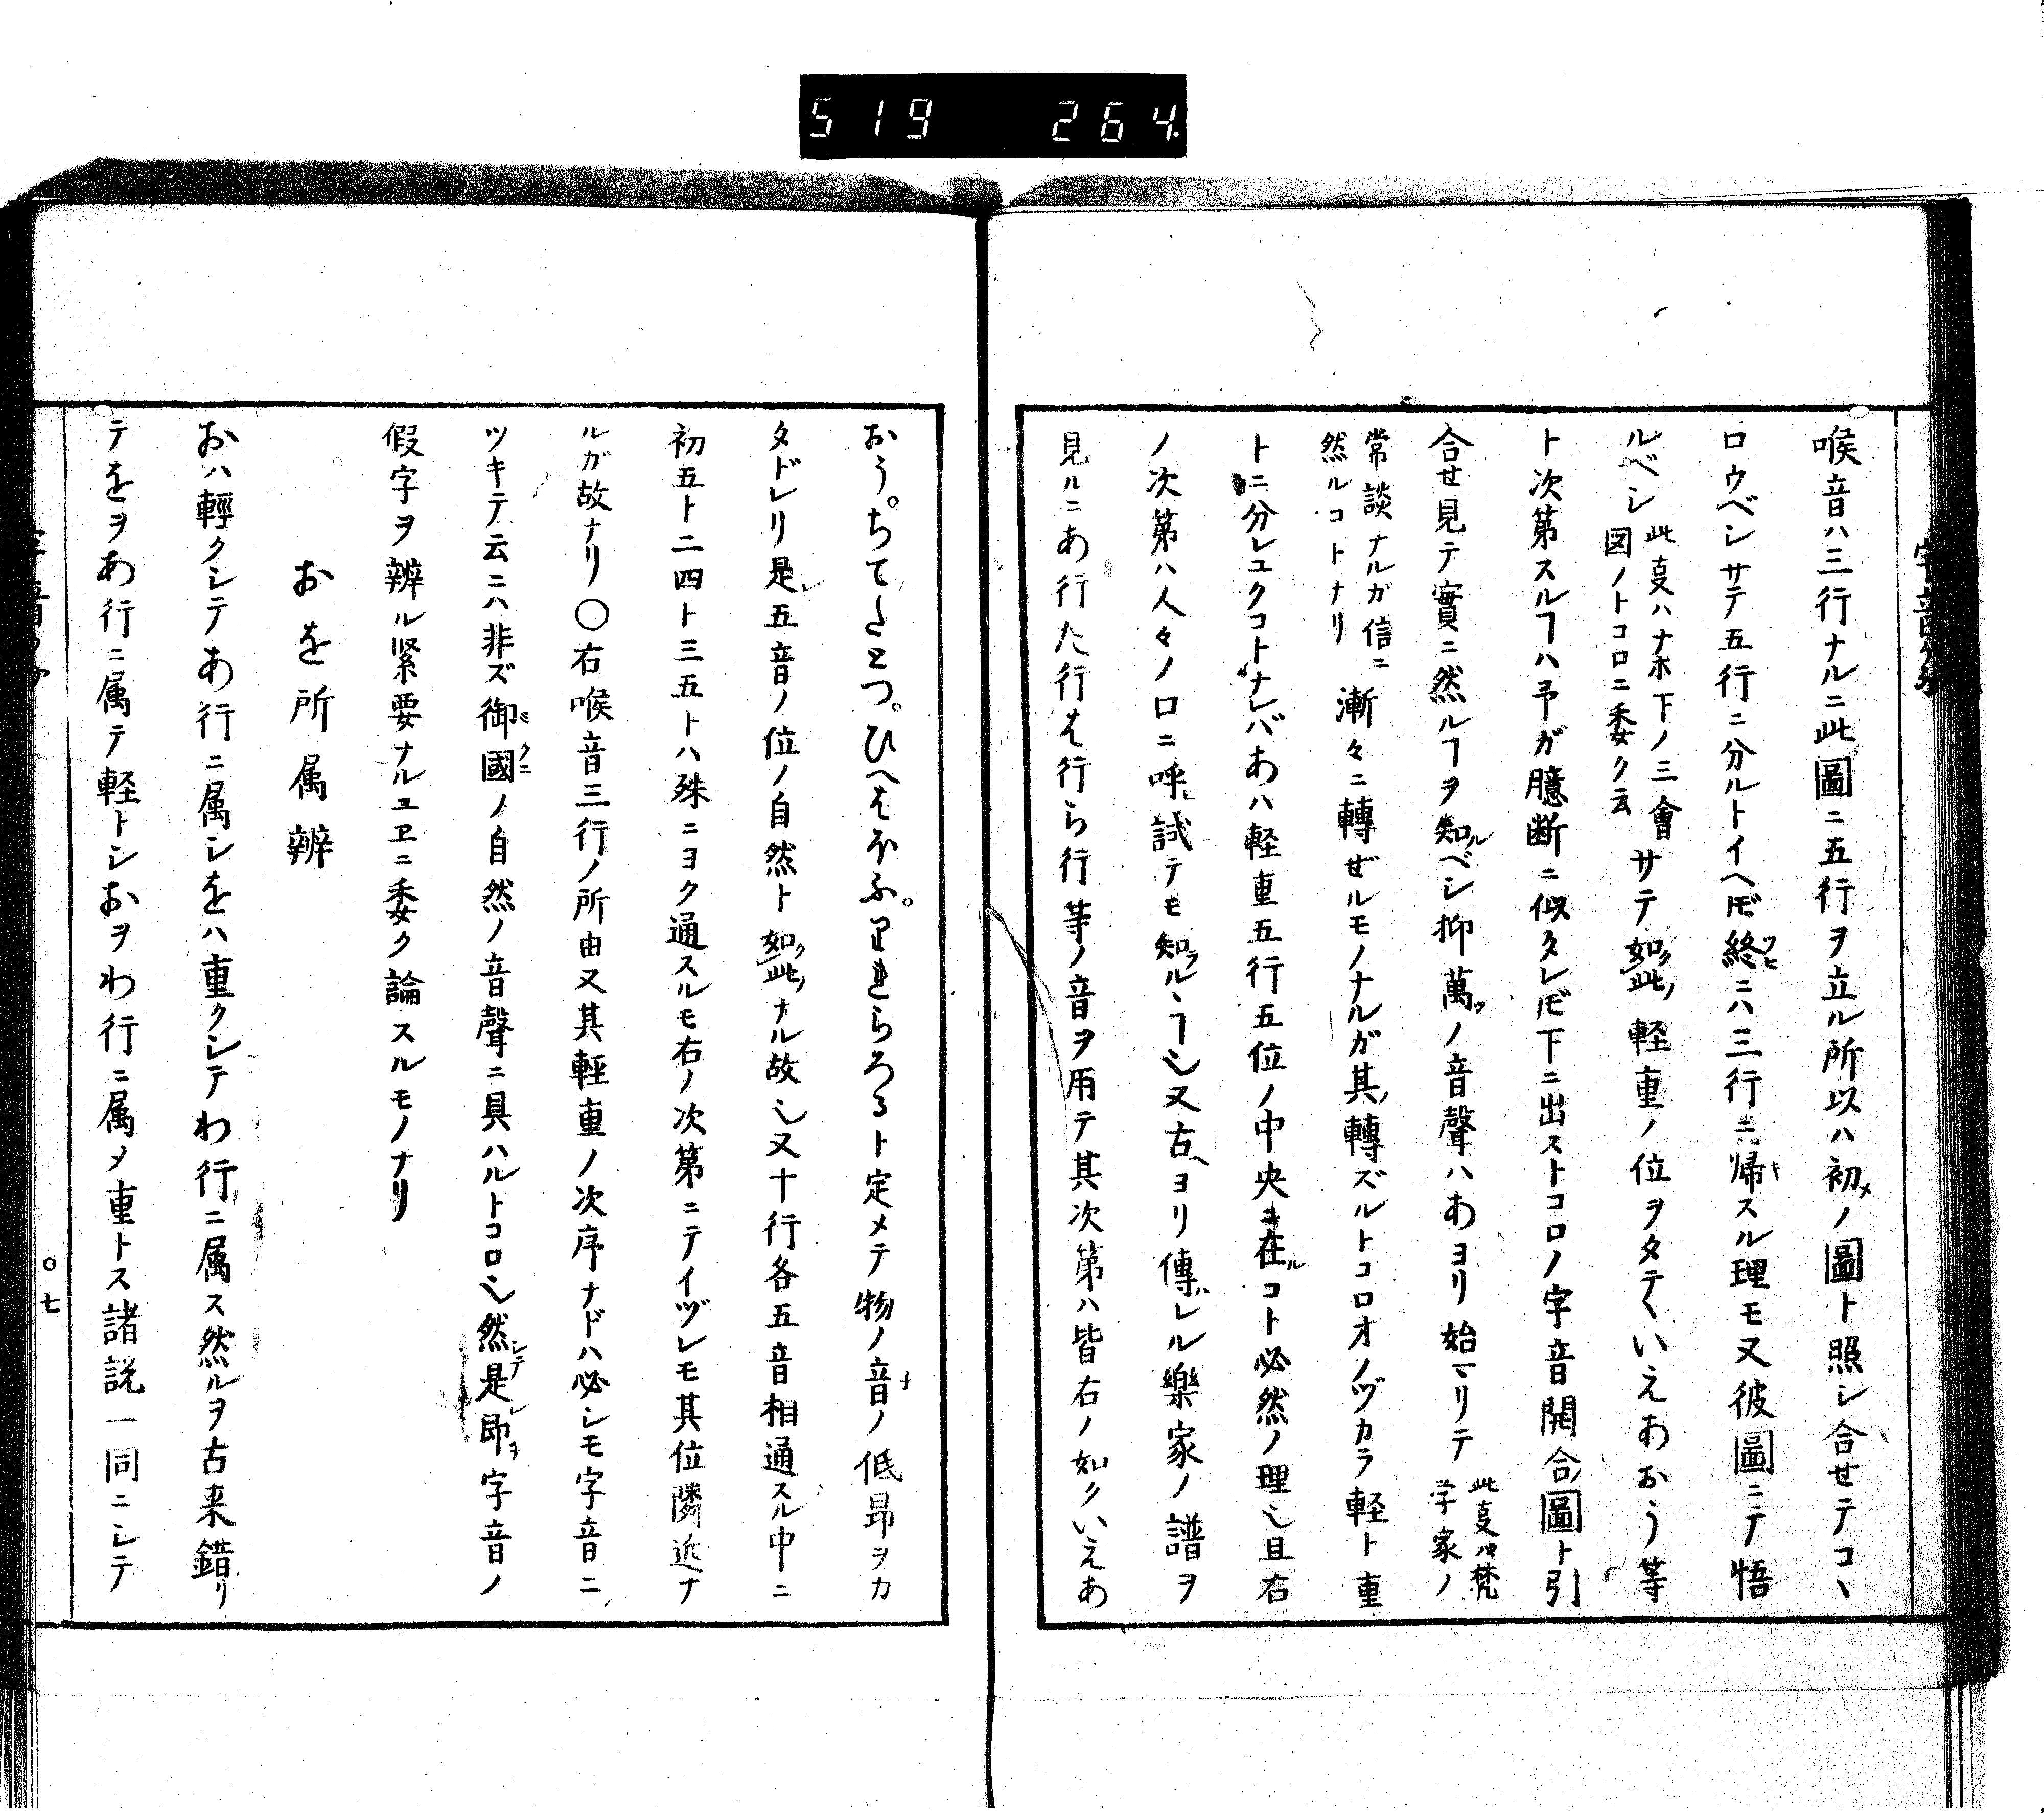 519 264
喉音ハ三行ナルニ此圖ニ五行ヲ立ル所以ハ初メノ圖ト照シ合セテコヽ
ロウベシサテ五行ニ分ルトイヘ𪜈終ニハ三行ニ帰スル理モ又彼圖ニテ悟
ルベシ此叓ハナホ下ノ三會図ノトコロニ委ク云サテ如此ノ軽重ノ位ヲタテヽいえあおう等
ト次第スルヿハ予ガ臆断ニ似タレ𪜈下ニ出ストコロノ字音開合ノ圖ト引
合セ見テ實ニ然ルヿヲ知ルベシ抑萬ツノ音聲ハあヨリ始マリテ此叓ハ梵学家ノ
常談ナルガ信ニ然ルコトナリ漸々ニ轉ゼルモノナルガ其ノ轉ズルトコロオノヅカラ軽ト重
トニ分レユクコトナレバあハ軽重五行五位ノ中央ニ在ルコト必然ノ理也且右
ノ次第ハ人々ノ口ニ呼試テモ知ラルヽヿ也又古ヘヨリ傳ハレル樂家ノ譜ヲ
見ルニあ行た行は行ら行等ノ音ヲ用テ其次第ハ皆右ノ如クいえあ
おう。ちてたとつ。ひへはほふ。りれらろるト定メテ物ノ音ノ低昂ヲカ
タドレリ是レ五音ノ位ノ自然ト如此クナル故也又十行各五音相通スル中ニ
初五ト二四ト三五トハ殊ニヨク通スルモ右ノ次第ニテイヅレモ其位隣近ナ
ルガ故ナリ○右喉音三行ノ所由又其輕重ノ次序ナドハ必シモ字音ニ
ツキテ云ニハ非ズ御國ノ自然ノ音聲ニ具ハルトコロ也然シテ是レ即チ字音ノ
假字ヲ辨ル緊要ナルユヱニ委ク論スルモノナリ
おを所属辨
おハ輕クシテあ行ニ属シをハ重クシテわ行ニ属ス然ルヲ古来錯リ
テをヲあ行ニ属テ軽トシおヲわ行ニ属メ重トス諸説一同ニシテ
○七